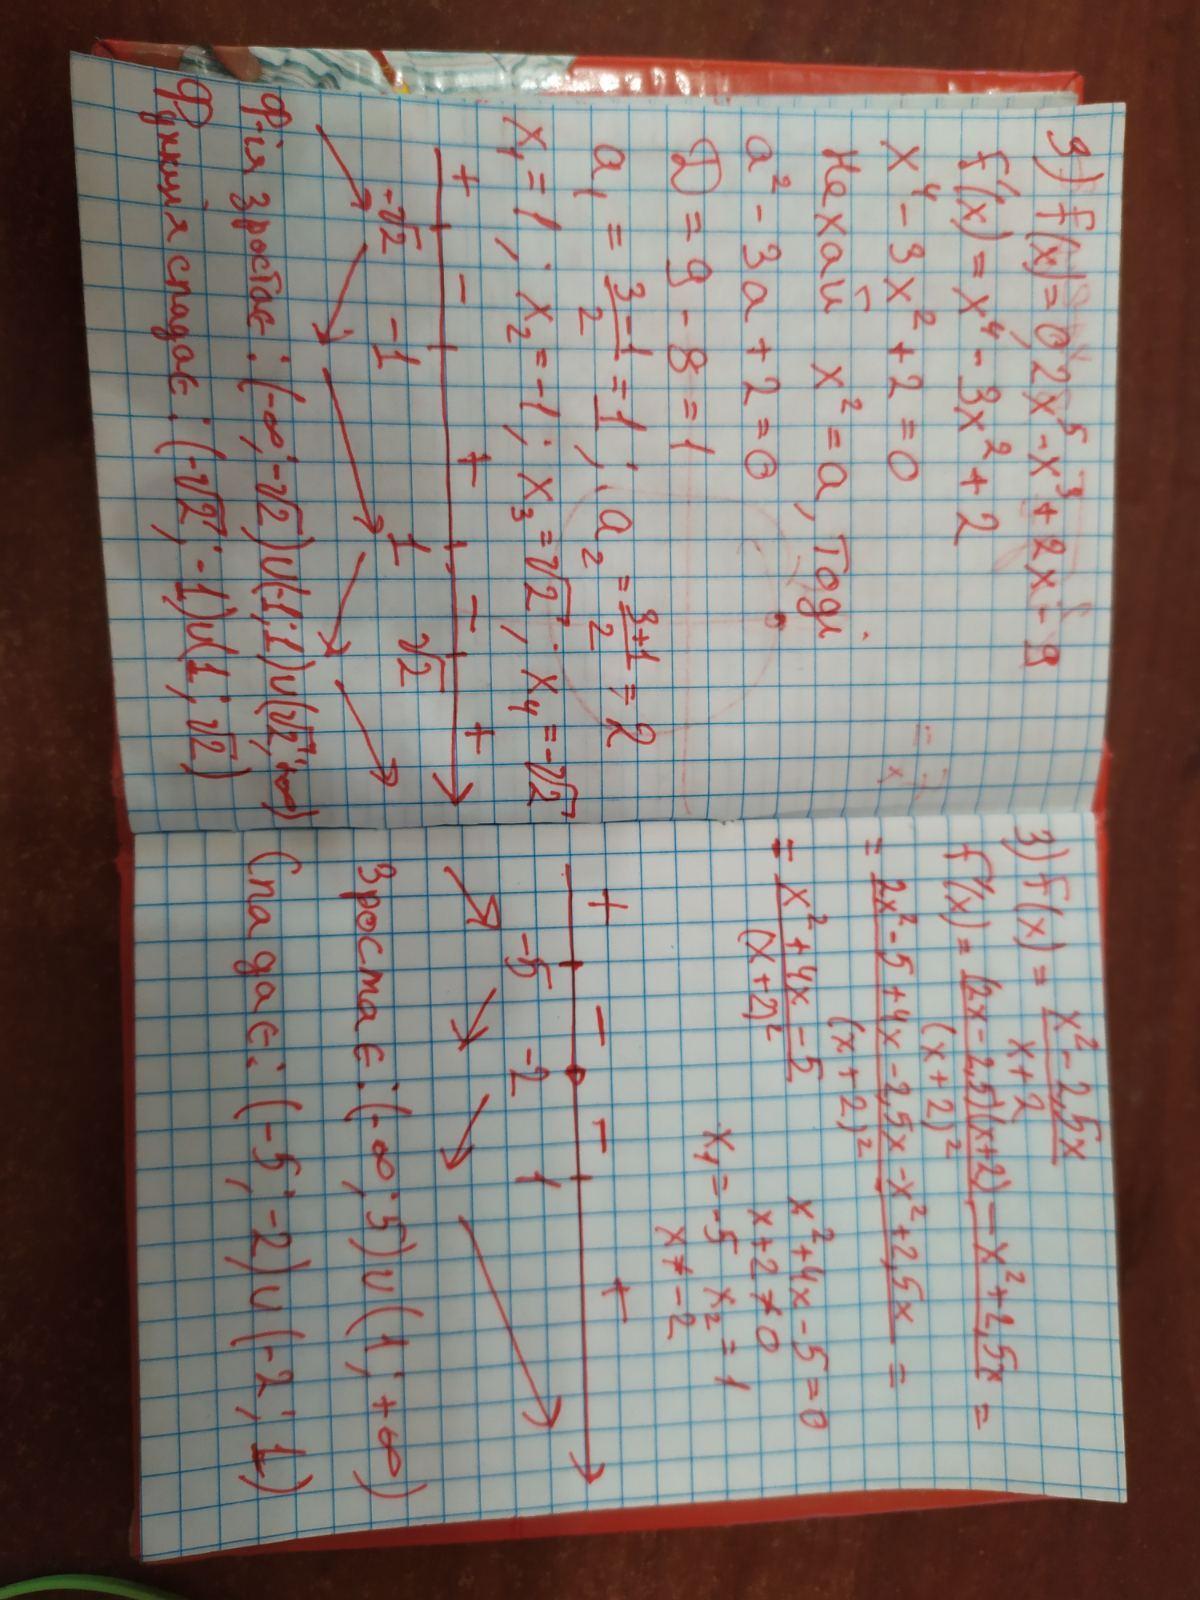 9) f(x) = 0,2x⁵ - x³ + 2x - 9
f'(x) = x⁴ - 3x² + 2
x⁴ - 3x² + 2 = 0
Нехай x² = a, тоді
a² - 3a + 2 = 0
D = 9 - 8 = 1
a₁ = (3-1)/2 = 1; a₂ = (3+1)/2 = 2
x₁ = 1; x₂ = -1; x₃ = √2; x₄ = -√2
+ - + - +
-√2 -1 1 √2
Ф-ія зростає: (-∞; -√2) ∪ (-1; 1) ∪ (√2; +∞)
Функція спадає: (-√2; -1) ∪ (1; √2)
3) f(x) = (x² - 2,5x)/(x + 2)
f'(x) = ((2x - 2,5)(x+2) - x² + 2,5x)/(x + 2)² =
= (2x² - 5 + 4x - 2,5x - x² + 2,5x)/(x + 2)² =
= (x² + 4x - 5)/(x + 2)²
x² + 4x - 5 = 0
x + 2 ≠ 0
x₁ = -5 x₂ = 1
x ≠ -2
+ - - +
-5 -2 1
Зростає: (-∞; 5) ∪ (1; +∞)
Спадає: (-5; -2) ∪ (-2; 1)